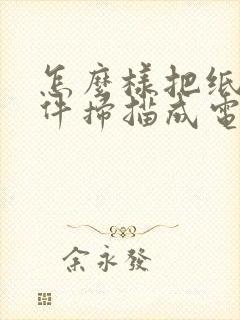 怎麼樣把纸
件掃描成電
余永發